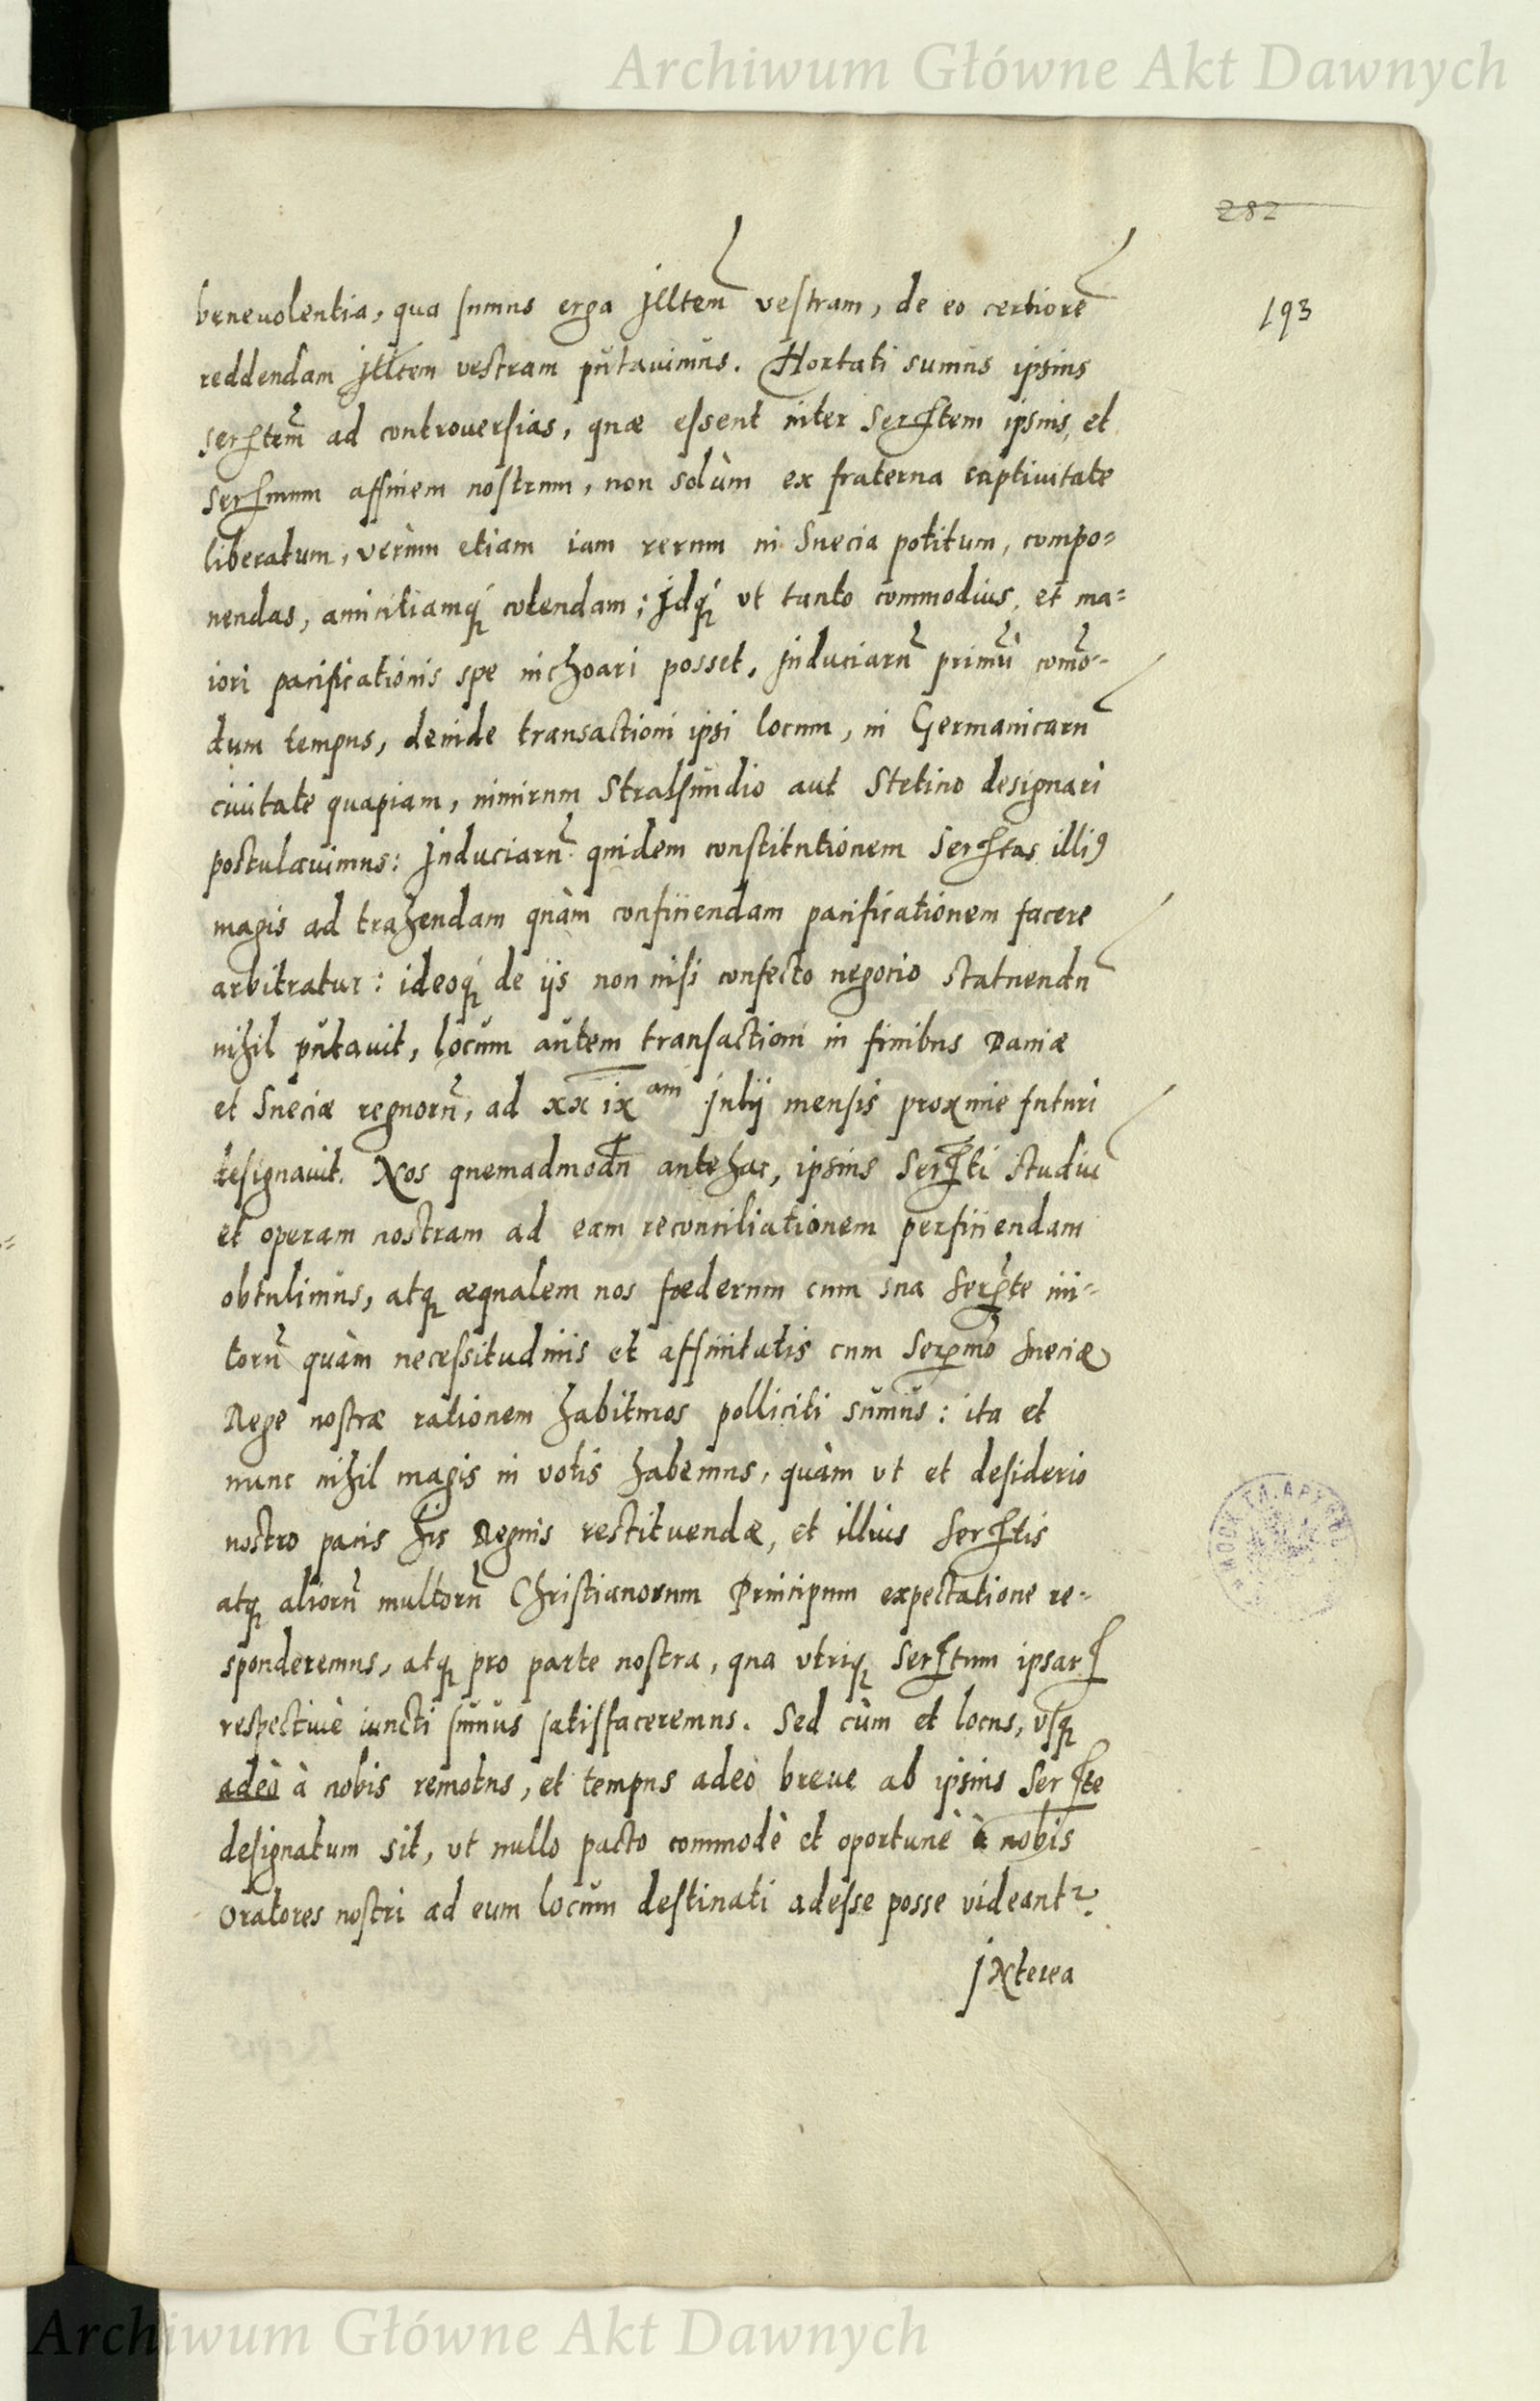 Archiwum Główne Akt Dawnych
282
193
beneuolentia, qua sumus erga Jlltem̃ vestram, de eo certiorẽ
reddendam Jlltem vestram putauimus. Hortati sumus ipsius
serꝭtem̃ ad controuersias, quæ essent inter Serꝭtem ipsius, et
Serꝭmum affinem nostrum, non solùm ex fraterna captiuitate
liberatum, verùm etiam iam rerum in Suecia potitum, compo=
nendas, amicitiamq́ꝫ colendam; Jdq́ꝫ vt tanto commodius, et ma=
iori pacificationis spe inchoari posset, Jnduciarũ primũ com̃o=
dum tempus, deinde transactioni ipsi locum, in Germanicarũ
ciuitate quapiam, nimirum Stralsundio aut Stetino designari
postulauimus: Jnduciarũ quidem constitutionem Serꝭtas illiꝰ
magis ad trahendam quàm conficiendam pacificationem facere
arbitratur: ideoq́ꝫ de ijs non nisi confecto negocio statuendũ
nihil putauit, locum autem transactioni in finibus Daniæ
et Sueciæ regnorũ, ad xxix am Julij mensis proxime futuri
designauit. Nos quemadmodũ antehac, ipsius Serꝭti studiũ
et operam nostram ad eam reconciliationem perficiendam
obtulimus, atqꝫ æqualem nos fœderum cum sua Serꝭte ini=
torũ quàm necessitudinis et affinitatis cum Serꝭmo Sueciæ
Rege nostræ rationem habituros polliciti sumus: ita et
nunc nihil magis in votis habemus, quàm vt et desiderio
nostro pacis his Regnis restituendæ, et illius Serꝭtis
atqꝫ aliorũ multorũ Christianorum Principum expectatione re=
sponderemus, atqꝫ pro parte nostra, qua vtriqꝫ Serꝭtum ipsarꝭ
respectiuè iuncti sumus satisfaceremus. Sed cùm et locus, vsqꝫ
adeò à nobis remotus, et tempus adeò breue ab ipsius Serꝭte
designatum sit, vt nullo pacto commodè et oportunè à nobis
Oratores nostri ad eum locum destinati adesse posse videantr.
JNterea
Archiwum Główne Akt Dawnych